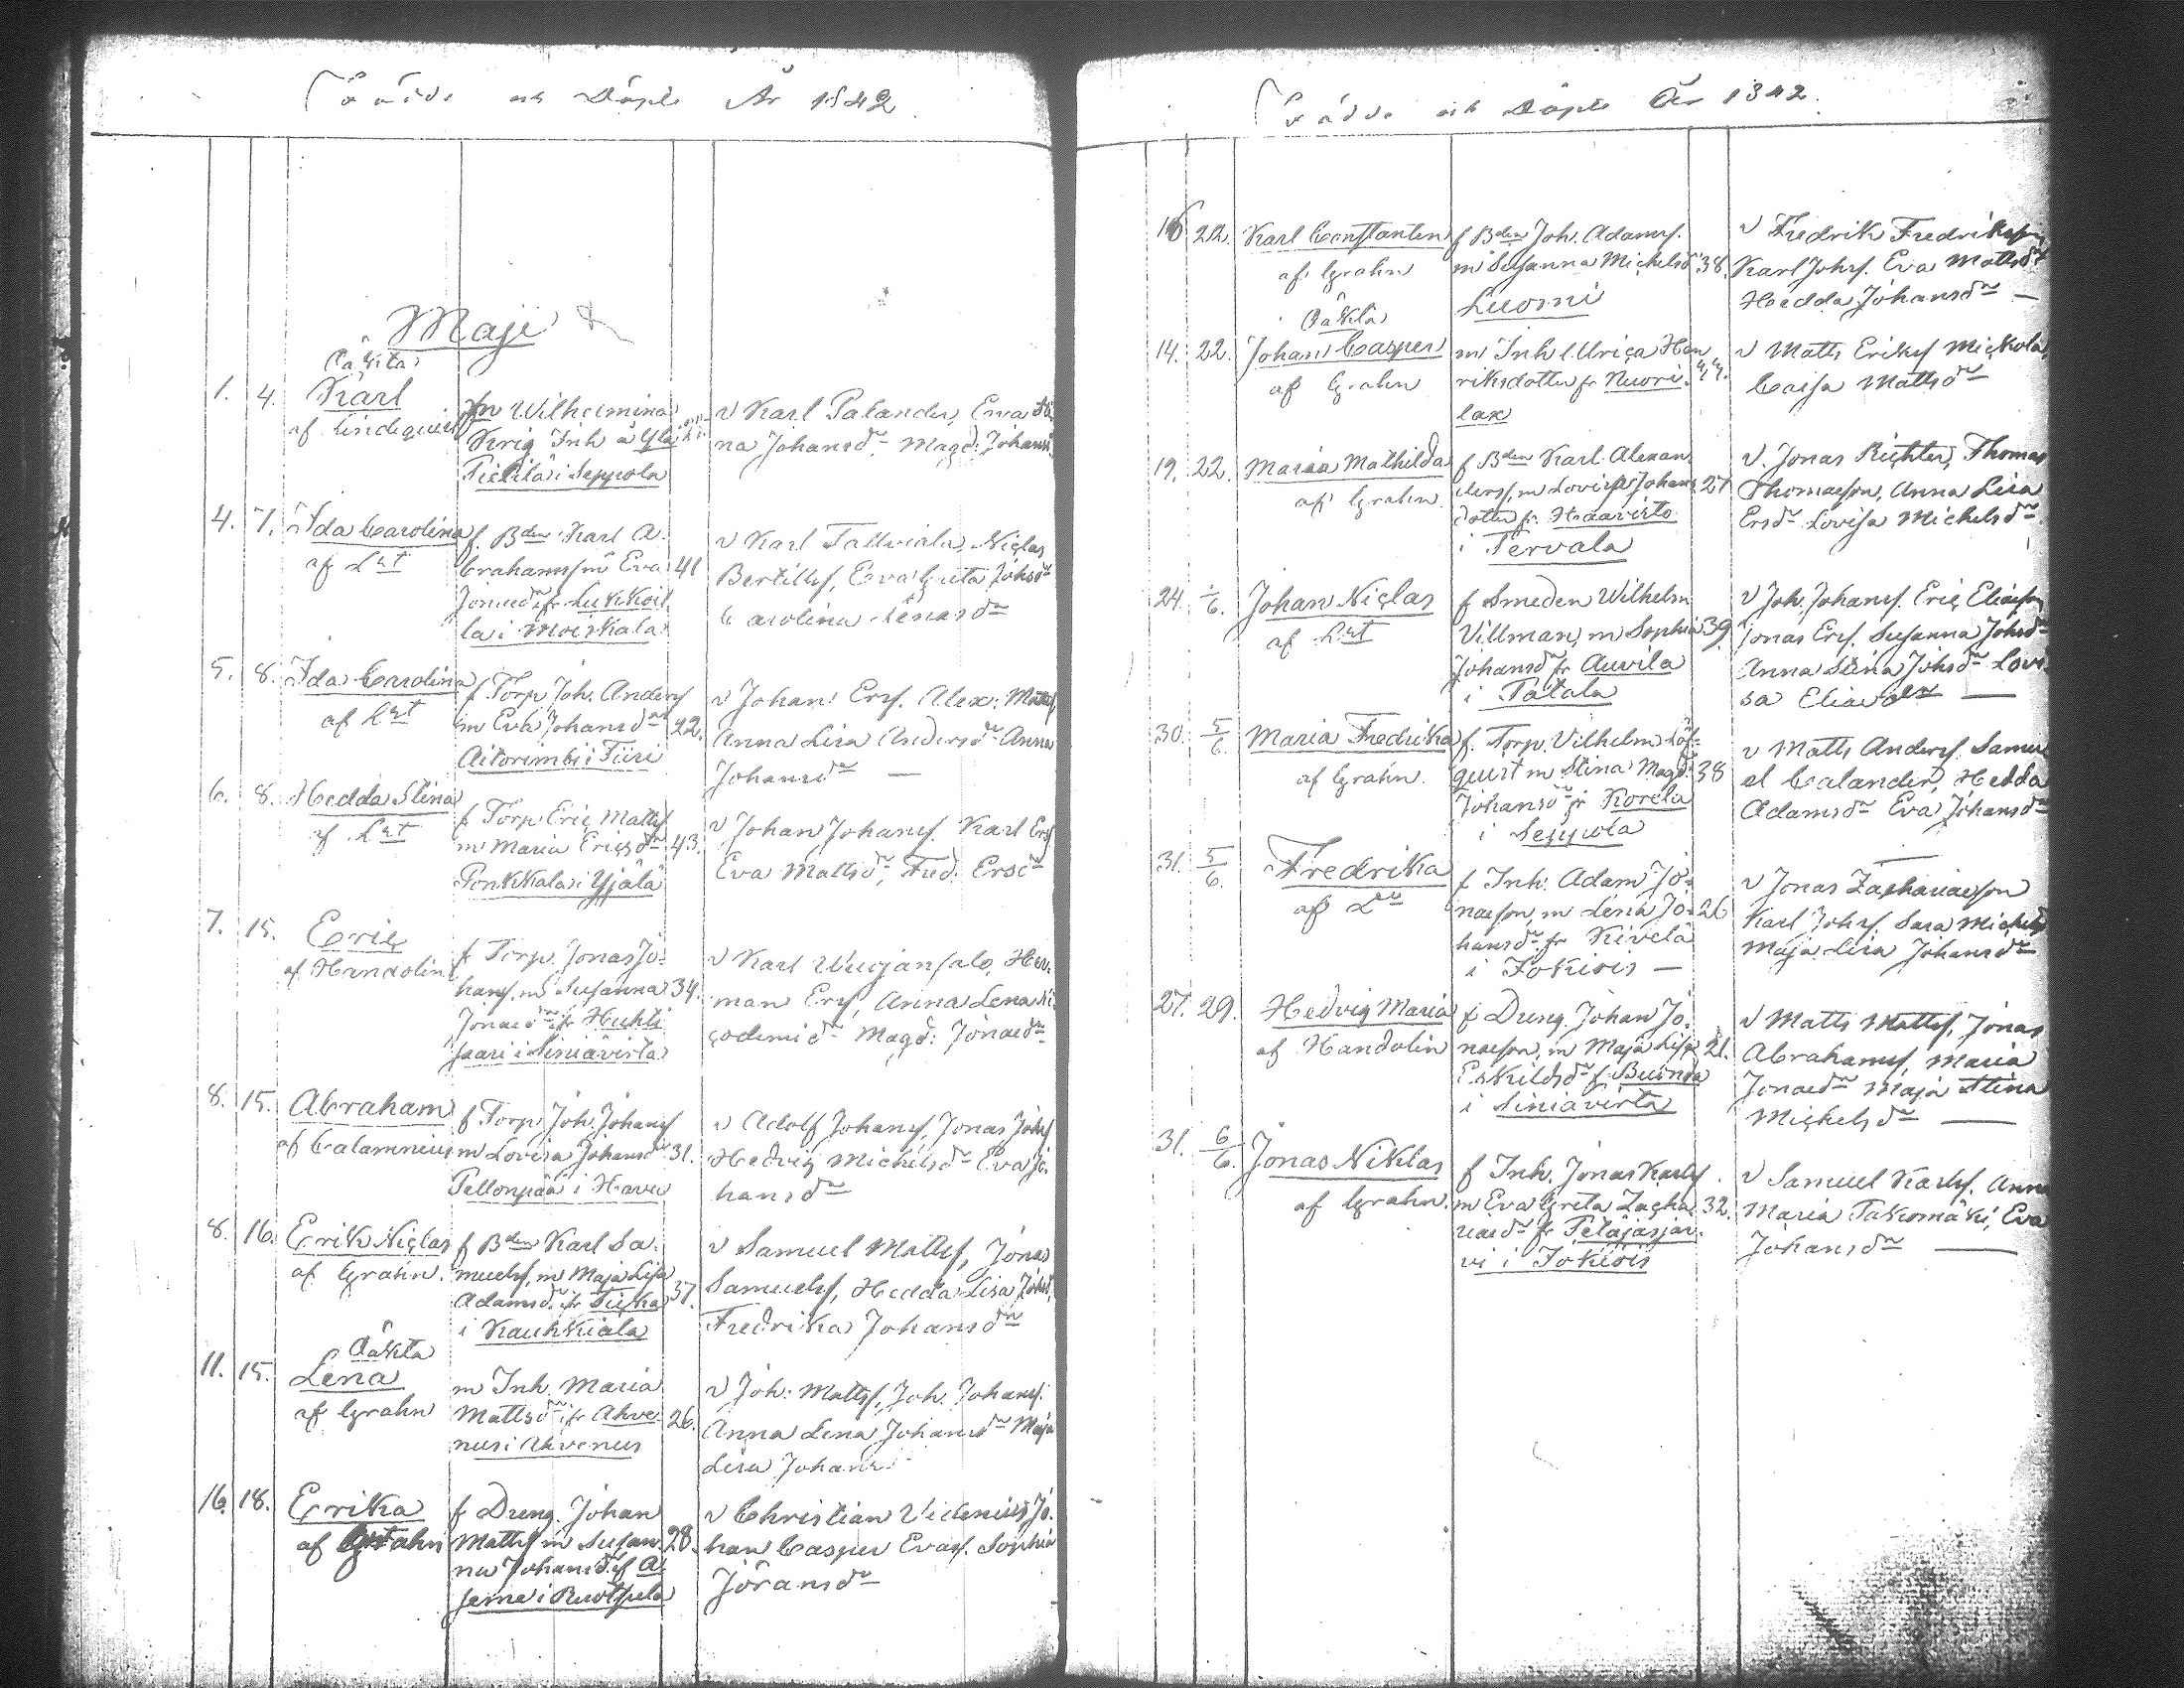 Födde och Döpte År 1842
Maji
Oäkta
1. 4. Karl
af Lindequist
m Wilhelmina
Krig Inh å Ylä
Pietilä i Seppola
v Karl Palander, Eva Sti
na Johansdr Magd: Johansd
4. 7. Ida Carolina
af Dito
f. Bden Karl A-
brahamss m Eva 41
Jonaedr fr Lukkoil
la i Moiskala
v Karl Tallviala, Niclas
Bertills, Eva Greta Johsdr
Carolina Lenasdr
5. 8. Ida Carolina
af Dito
f Torp Joh. Anders
m Eva Johansdr 22.
Aitorimbi i Tiiri
v Johan Ers. Alex: Matts
Anna Lisa Andersdr Anna
Johansdr —
6. 8. Hedda Stina
af Dito
f Torp. Eric Matts
m Maria Ericsdr 43.
Ponkkala i Yjälä
v Johan Johans. Karl Ers
Eva Mattsdr, Fred. Ersdr
7. 15. Eric
af Handolin
f Torp. Jonas Jo-
hans. m Susanna 34.
Jonaedr fr Huhti
saari i Siniävirta
v Karl Wuojansalo, Her-
man Ers, Anna Lena Ni
codemidr Magd: Jonaedr
8. 15. Abraham
af Calamnius
f Torp Joh. Johans
m Lovisa Johansdr 31.
Pellonpää i Havu
v Adolf Johans, Jonas Johs
Hedvig Michelsdr Eva Jo-
hansdr
8. 16. Erik Niclas
af Grahn.
f Bden Karl Sa-
muels, m Maja Lisa
Adamsdr fr Tuska 37.
i Kauhkiala
v Samuel Matts, Jonas
Samuels, Hedda Lisa Johsd.
Fredrika Johansdr
Oäkta
11. 15. Lena
af Grahn
m Inh. Maria
Mattsdr fr Ahve- 26.
nus i Ahvenus
v Joh: Matts, Joh. Johans.
Anna Lena Johansdr Maja
Lisa Johans
16. 18. Erika
af Grahn
f Dreng. Johan
Matts m Susan- 28.
na Johansdr f A-
sema i Ruotsula
v Christian Videnius, Jo-
han Casper Evas. Sophia
Jöransdr
Födde och Döpte År 1842.
16 22. Karl Constantin
af Grahn
f Bden Joh. Adams.
m Susanna Michelsd 38.
Luomi
v Fredrik Fredriksson,
Karl Johs. Eva Mattsdr
Hedda Johansdr —
Oäkta
14. 22. Johan Casper
af Grahn
m Inh Ulrica Hen
riksdotter fr Nuori-
lax
v Matts Eriks Mickola
Caisa Mattsdr
19. 22. Maria Mathilda
af Grahn
f Bden Karl Alexan-
ders, m Lovisa Johans 27
dotter fr Haavisto
i Tervala
v. Jonas Richter, Thomas
Thomasson, Anna Lisa
Ersdr Lovisa Michelsdr
24. 1/6. Johan Niclas
af Dito
f Smeden Wilhelm
Villman, m Sophia 39.
Johansdr fr Auvila
i Tatala
v Joh. Johans. Eric Eliasson
Jonas Ers. Susanna Johsdr
Anna Stina Johsdr Lovi-
sa Eliaedr —
30. 5/6. Maria Fredrika
af Grahn.
f. Torp. Vilhelm Löf-
quist m Stina Magd: 38
Johansdr fr Korela
i Seppola
v Matts Anders. Samu-
el Calander, Hedda
Adamsdr Eva Johansdr
31. 5/6. Fredrika
af Do
f Inh. Adam Jo-
nasson, m Lena Jo- 26
hansdr fr Kivelä
i Jokiois —
v Jonas Zachariasson
Karl Johs. Sara Michelsd
Maja Lisa Johansdr
27. 29. Hedvig Maria
af Handolin
f Dreng. Johan Jo-
nasson, m Maja Lisa 21.
Eskildsdr f Buonda
i Siniavirta
v Matts Matts, Jonas
Abrahams, Maria
Jonaedr Maja Stina
Michelsdr —
31. 6/6. Jonas Niklas
af Grahn.
f Inh. Jonas Karls
m Eva Greta Zacha- 32.
riaedr fr Petäjäsjär-
vi i Jokiois
v Samuel Karls. Anna
Maria Takomäki, Eva
Johansdr —